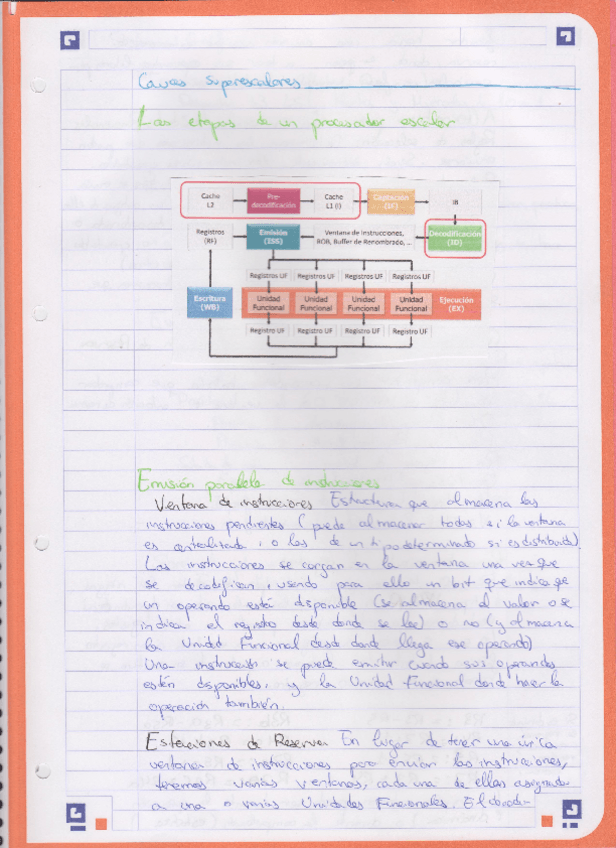 Cauces Superescalares
Las etapas de un procesador escalar
Cache L2
Pre-decodificación
Cache L1 (I)
Captación (IF)
IB
Registros (RF)
Emisión (ISS)
Ventana de Instrucciones, ROB, Buffer de Renombrado, ...
Decodificación (ID)
Registros UF Registros UF Registros UF Registros UF
Escritura (WB)
Unidad Funcional Unidad Funcional Unidad Funcional Unidad Funcional
Ejecución (EX)
Registro UF Registro UF Registro UF Registro UF
Emisión paralela de instrucciones
Ventana de instrucciones Estructura que almacena las
instrucciones pendientes (puede almacenar todas si la ventana
es centralizada, o las de un tipo determinado si es distribuida).
Las instrucciones se cargan en la ventana una vez que
se decodifican, usando para ello un bit que indica que
un operando está disponible (se almacena el valor o se
indica el registro desde donde se lee) o no (y almacena
la Unidad Funcional desde donde llega ese operando)
Una instrucción se puede emitir cuando sus operandos
están disponibles, y la Unidad Funcional donde hacer la
operación también.
Estaciones de Reserva En lugar de tener una única
ventana de instrucciones para enviar las instrucciones,
tenemos varias ventanas, cada una de ellas asignada
a una o varias Unidades Funcionales. El decodi-